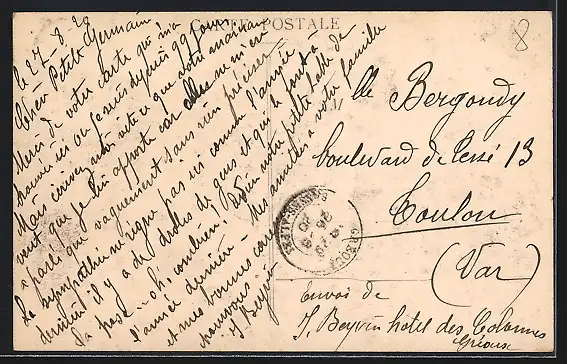 CARTE POSTALE
8
le 27-8-20
Cher Petit Germain
Merci de votre carte qui m'a
trouvée ici où je suis depuis 99 jours
Mais écrivez moi vite ce que votre maman
veut que je lui apporte car elle ne m'en
a parlé que vaguement sans rien préciser
La sympathie ne règne pas ici comme l'année
dernière il y a de drôles de gens et qui la font à
la pose - h, combien! Redire notre petite table de
l'année dernière - Mes amitiés à votre famille
et mes bonnes
pour vous
J. Beyvin
Mlle Bergondy
boulevard de Tessé 13
Toulon
(Var)
Envoi de
J. Beyvin hôtel des Colonnes
Gréoux
GREOUX
BASSES-ALPES